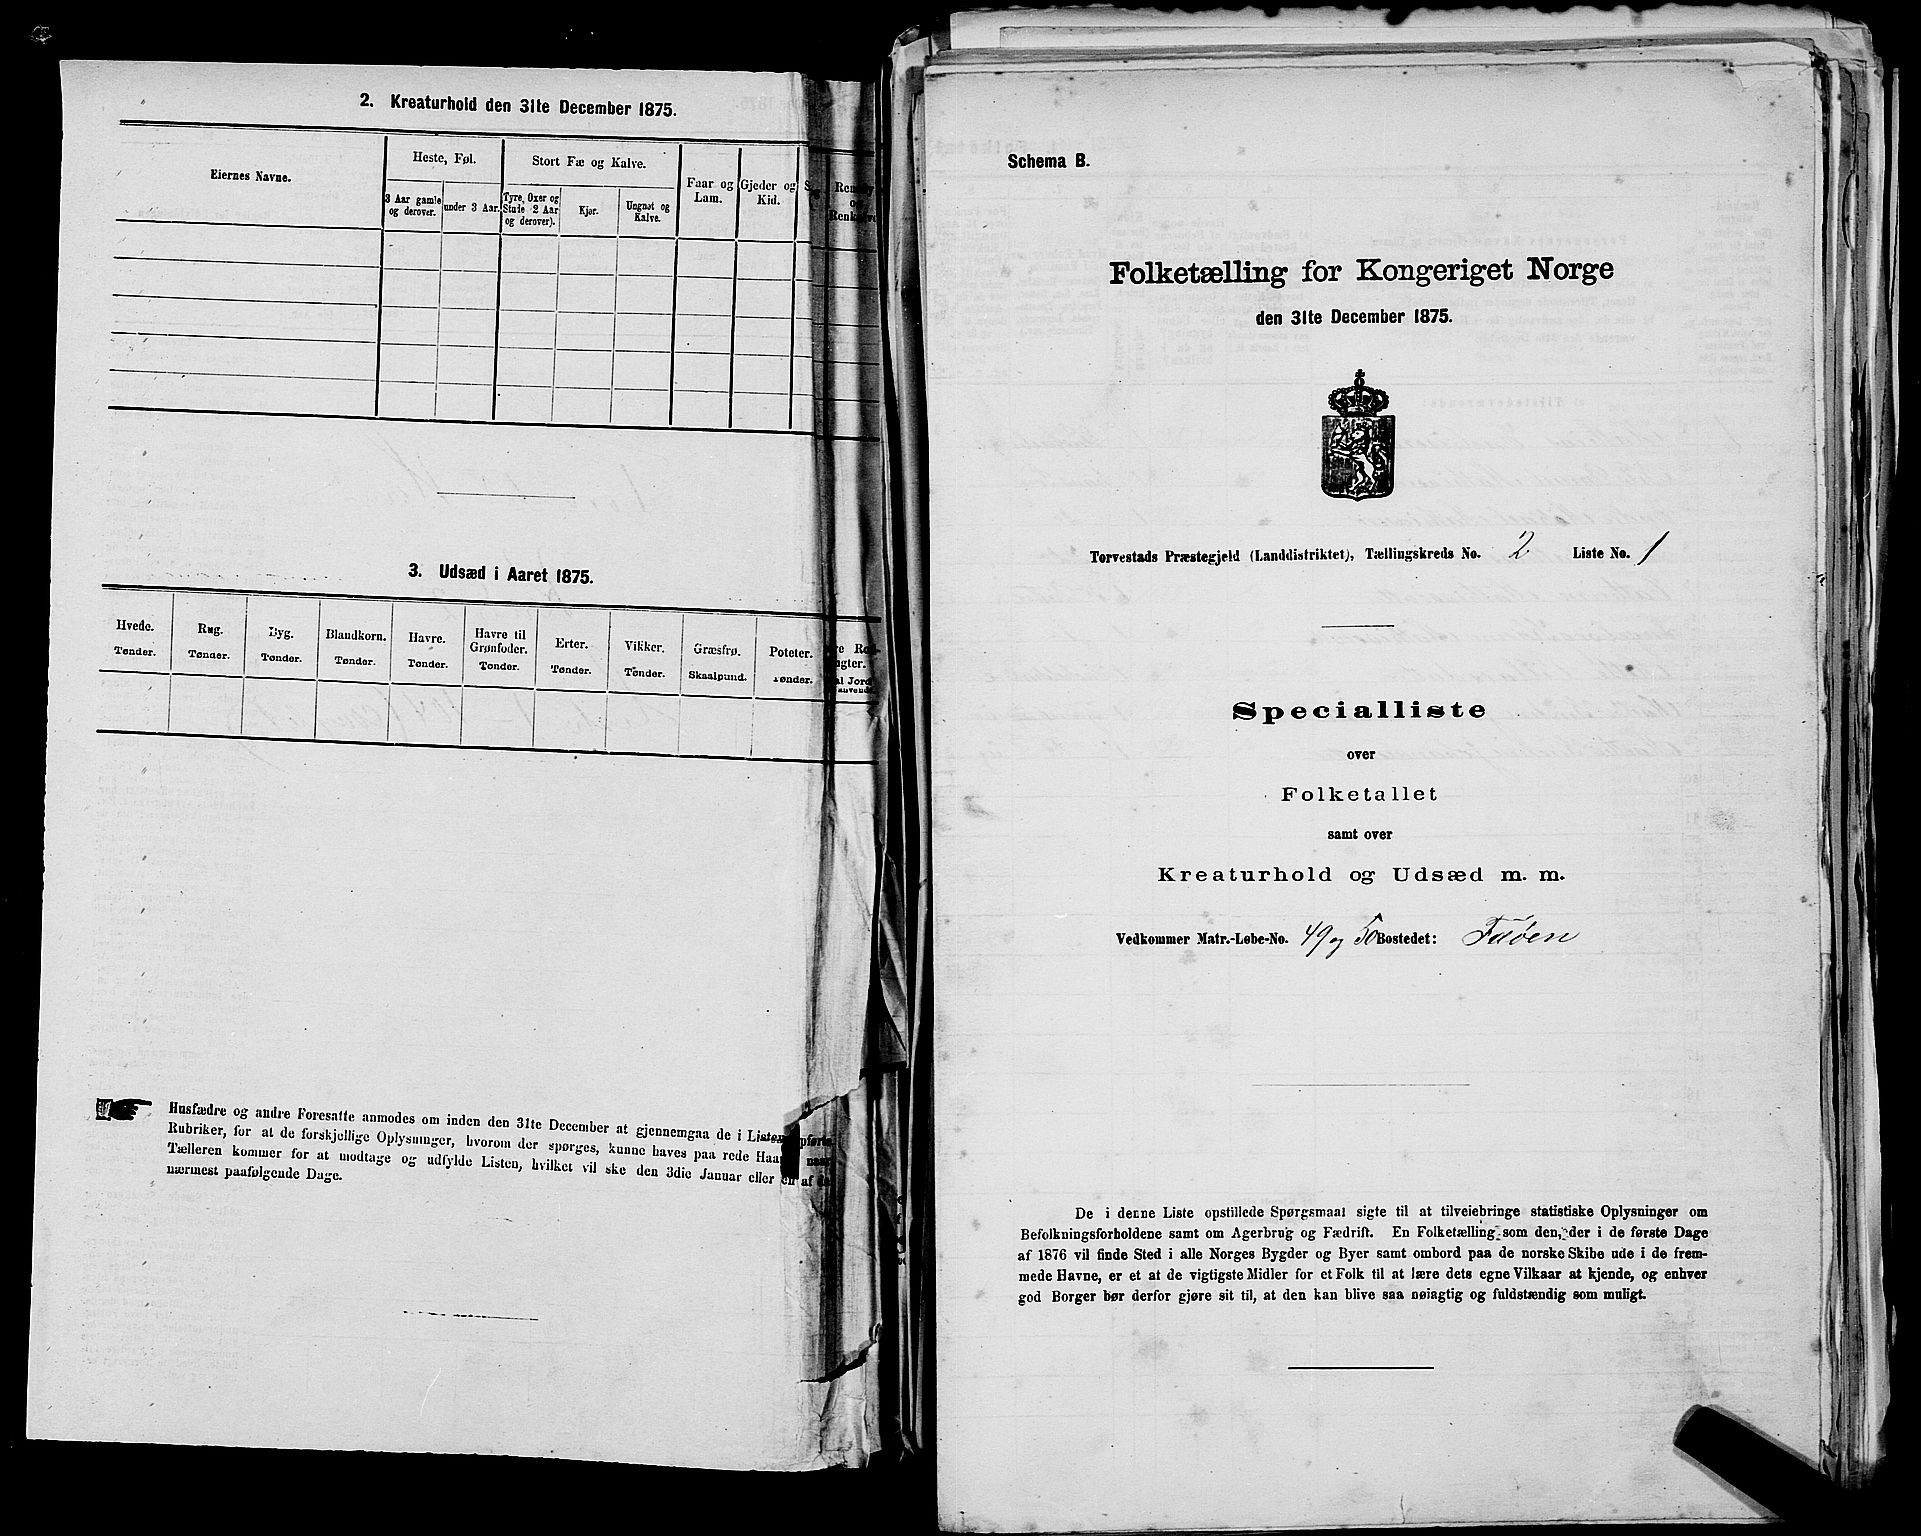 2. Kreaturhold den 31te December 1875.
Eiernes Navne.
Heste, Føl.
3 Aar gamle og derover.
under 3 Aar.
Stort Fæ og Kalve.
Tyre, Oxer og Stude 2 Aar og derover).
Kjør.
Ungnøt og Kalve.
Faar og Lam.
Gjeder og Kid.
3. Udsæd i Aaret 1875.
Hvede. Rug. Byg. Blandkorn. Havre. Havre til Grønfoder. Erter. Vikker. Græsfrø. Poteter.
Tønder. Tønder. Tønder. Tønder. Tønder. Tønder. Tønder. Tønder. Skaalpund. Tønder.
Husfædre og andre Foresatte anmodes om inden den 31te December at gjennemgaa de i
Rubriker, for at de forskjellige Oplysninger, hvorom der spørges, kunne haves paa rede
Tælleren kommer for at modtage og udfylde Listen, hvilket vil ske den 3die Januar eller en af de
nærmest paafølgende Dage.
Schema B.
Folketælling for Kongeriget Norge
den 31te December 1875.
Torvestads Præstegjeld (Landdistriktet), Tællingskreds No. 2 Liste No. 1
Specialliste
over
Folketallet
samt over
Kreaturhold og Udsæd m. m.
Vedkommer Matr.-Løbe-No. 49 og 50 Bostedet: Faøen
De i denne Liste opstillede Spørgsmaal sigte til at tilveiebringe statistiske Oplysninger om
Befolkningsforholdene samt om Agerbrug og Fædrift. En Folketælling som den, der i de første Dage
af 1876 vil finde Sted i alle Norges Bygder og Byer samt ombord paa de norske Skibe ude i de frem-
mede Havne, er et at de vigtigste Midler for et Folk til at lære dets egne Vilkaar at kjende, og enhver
god Borger bør derfor gjøre sit til, at den kan blive saa nøiagtig og fuldstændig som muligt.